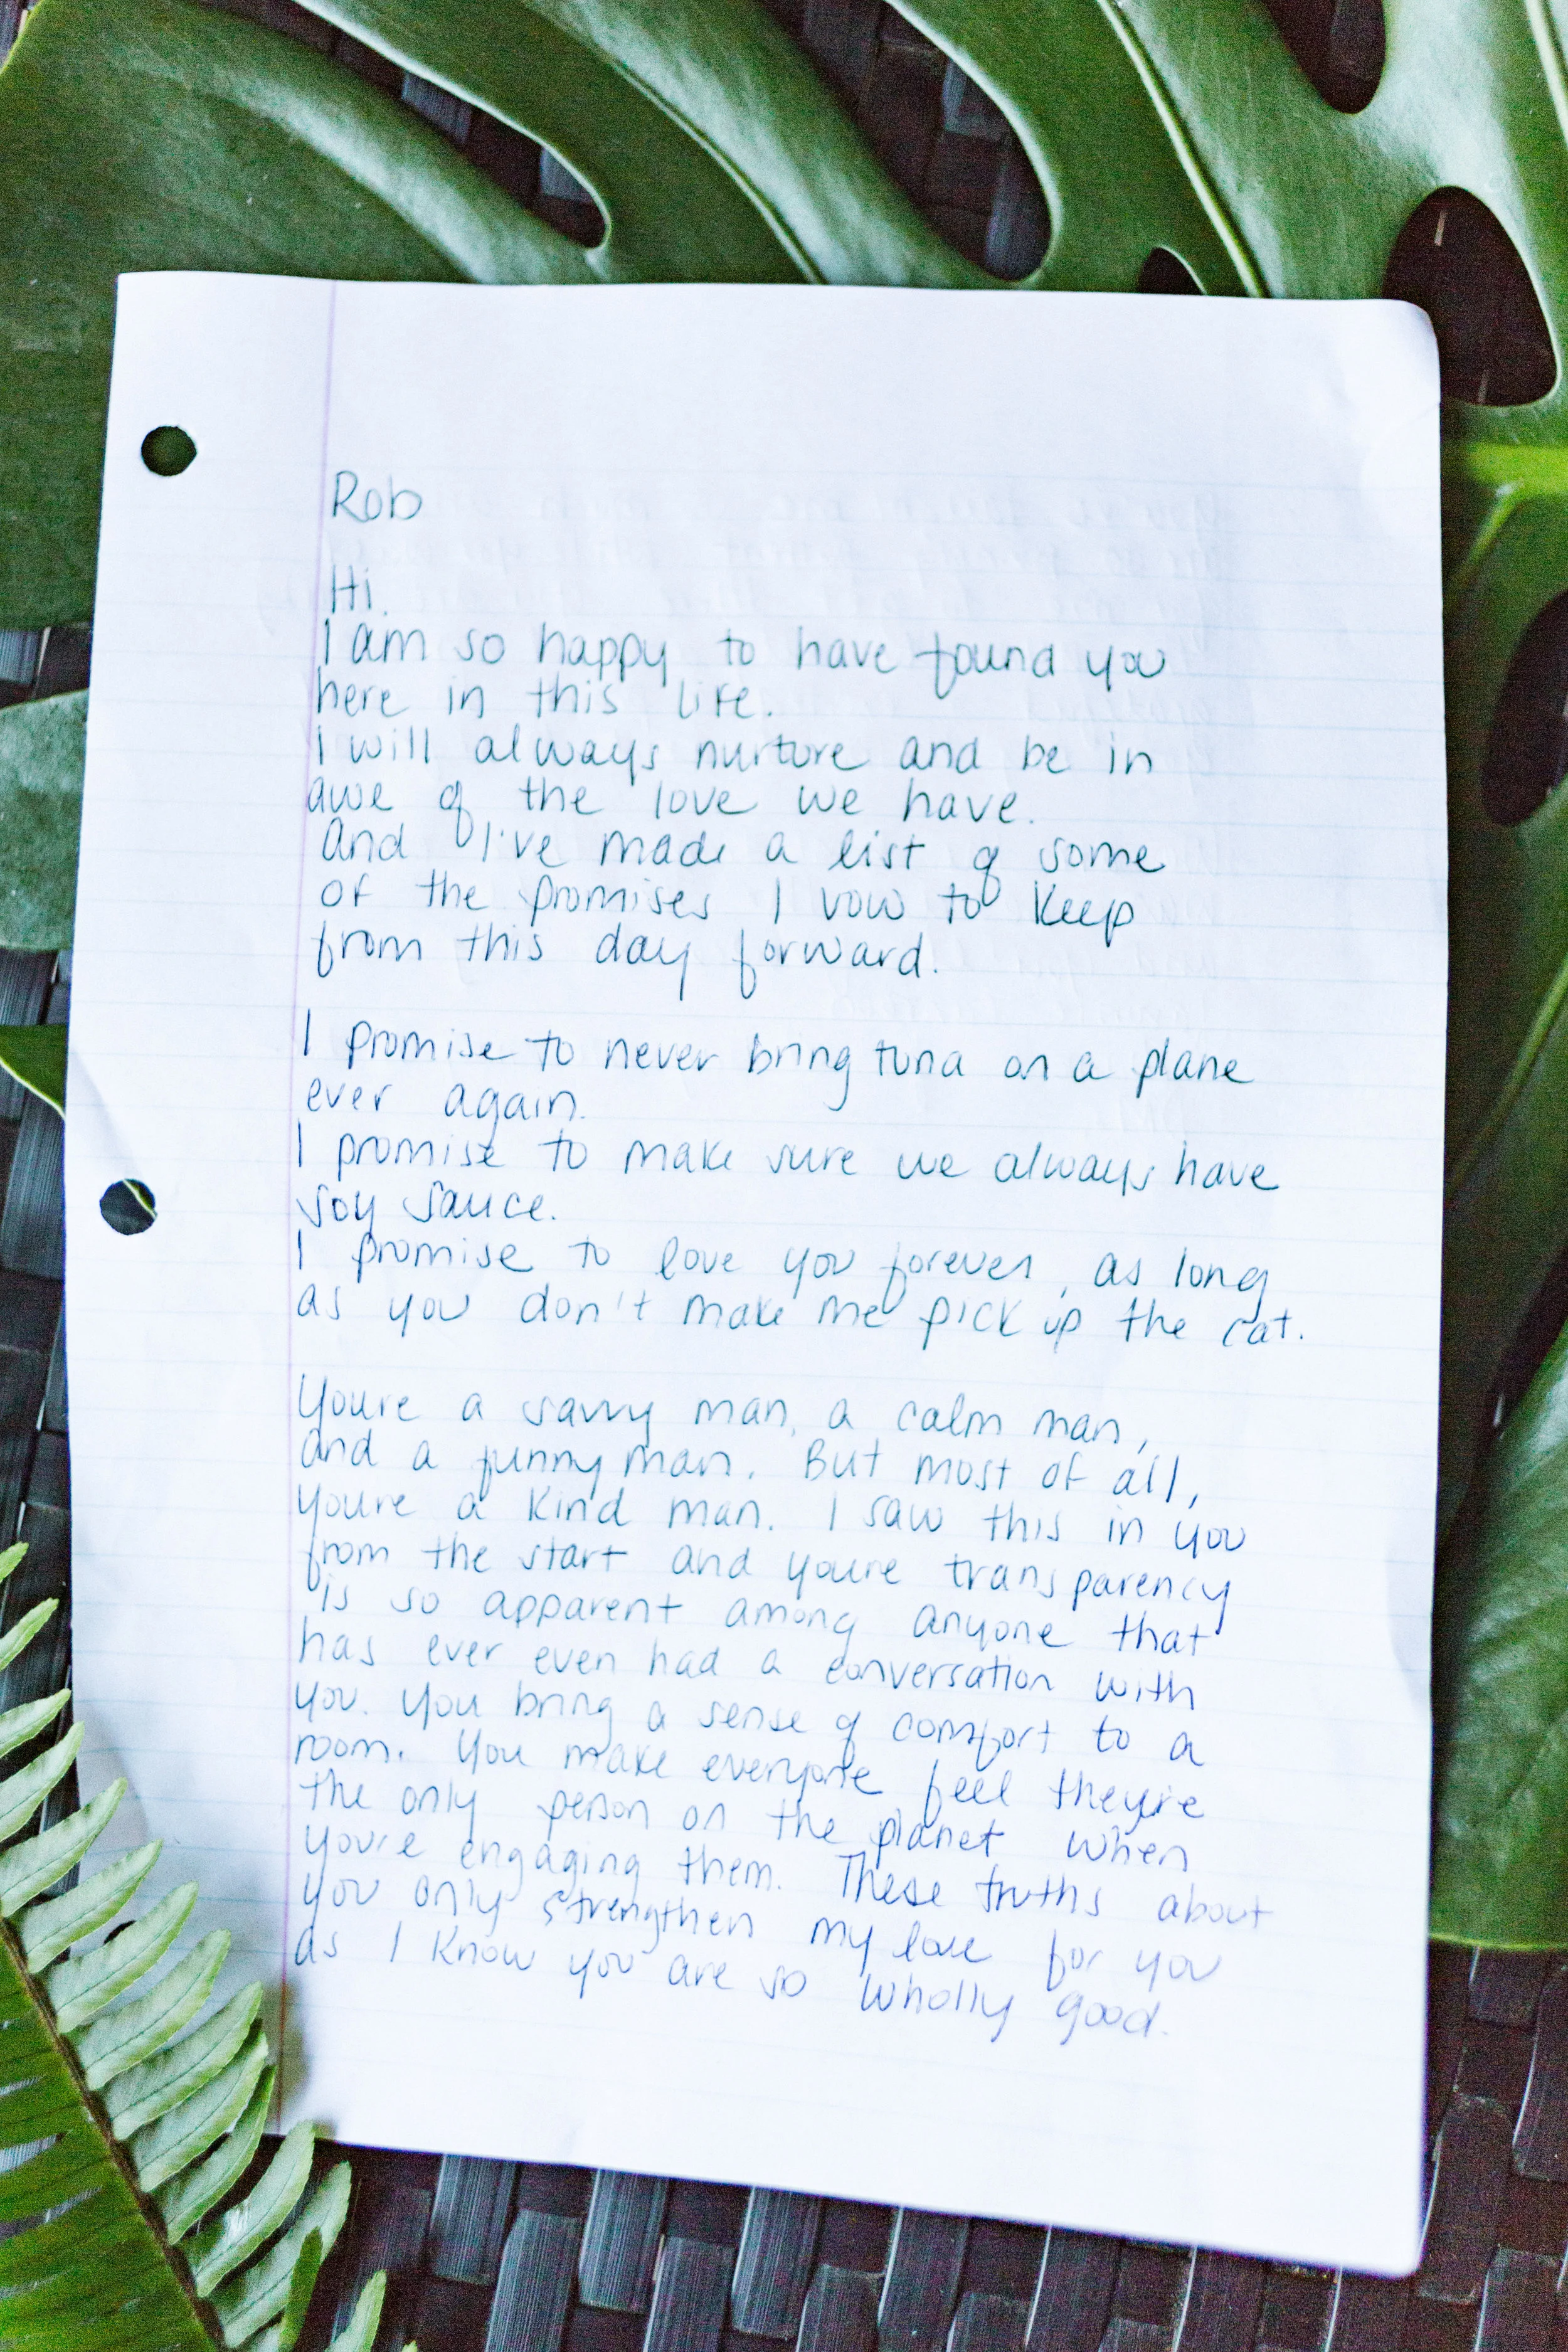 Rob
Hi.
I am so happy to have found you
here in this life.
I will always nurture and be in
awe of the love we have.
And I've made a list of some
of the promises I vow to keep
from this day forward.
I promise to never bring tuna on a plane
ever again.
I promise to make sure we always have
soy sauce.
I promise to love you forever, as long
as you don't make me pick up the cat.
Youre a savvy man, a calm man,
and a funny man. But most of all,
youre a kind man. I saw this in you
from the start and youre transparency
is so apparent among anyone that
has ever even had a conversation with
you. You bring a sense of comfort to a
room. You make everyone feel they're
the only person on the planet when
you're engaging them. These truths about
you only strengthen my love for you
as I know you are so wholly good.